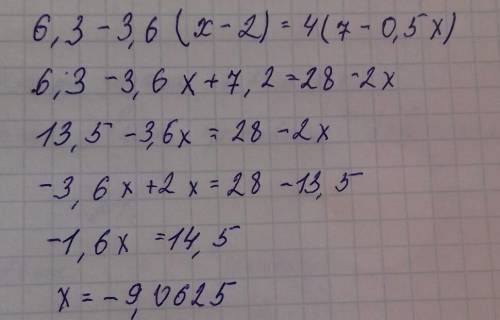 6,3 - 3,6 (x - 2) = 4 (7 - 0,5x)
6,3 - 3,6x + 7,2 = 28 - 2x
13,5 - 3,6x = 28 - 2x
-3,6x + 2x = 28 - 13,5
-1,6x = 14,5
x = -9,0625